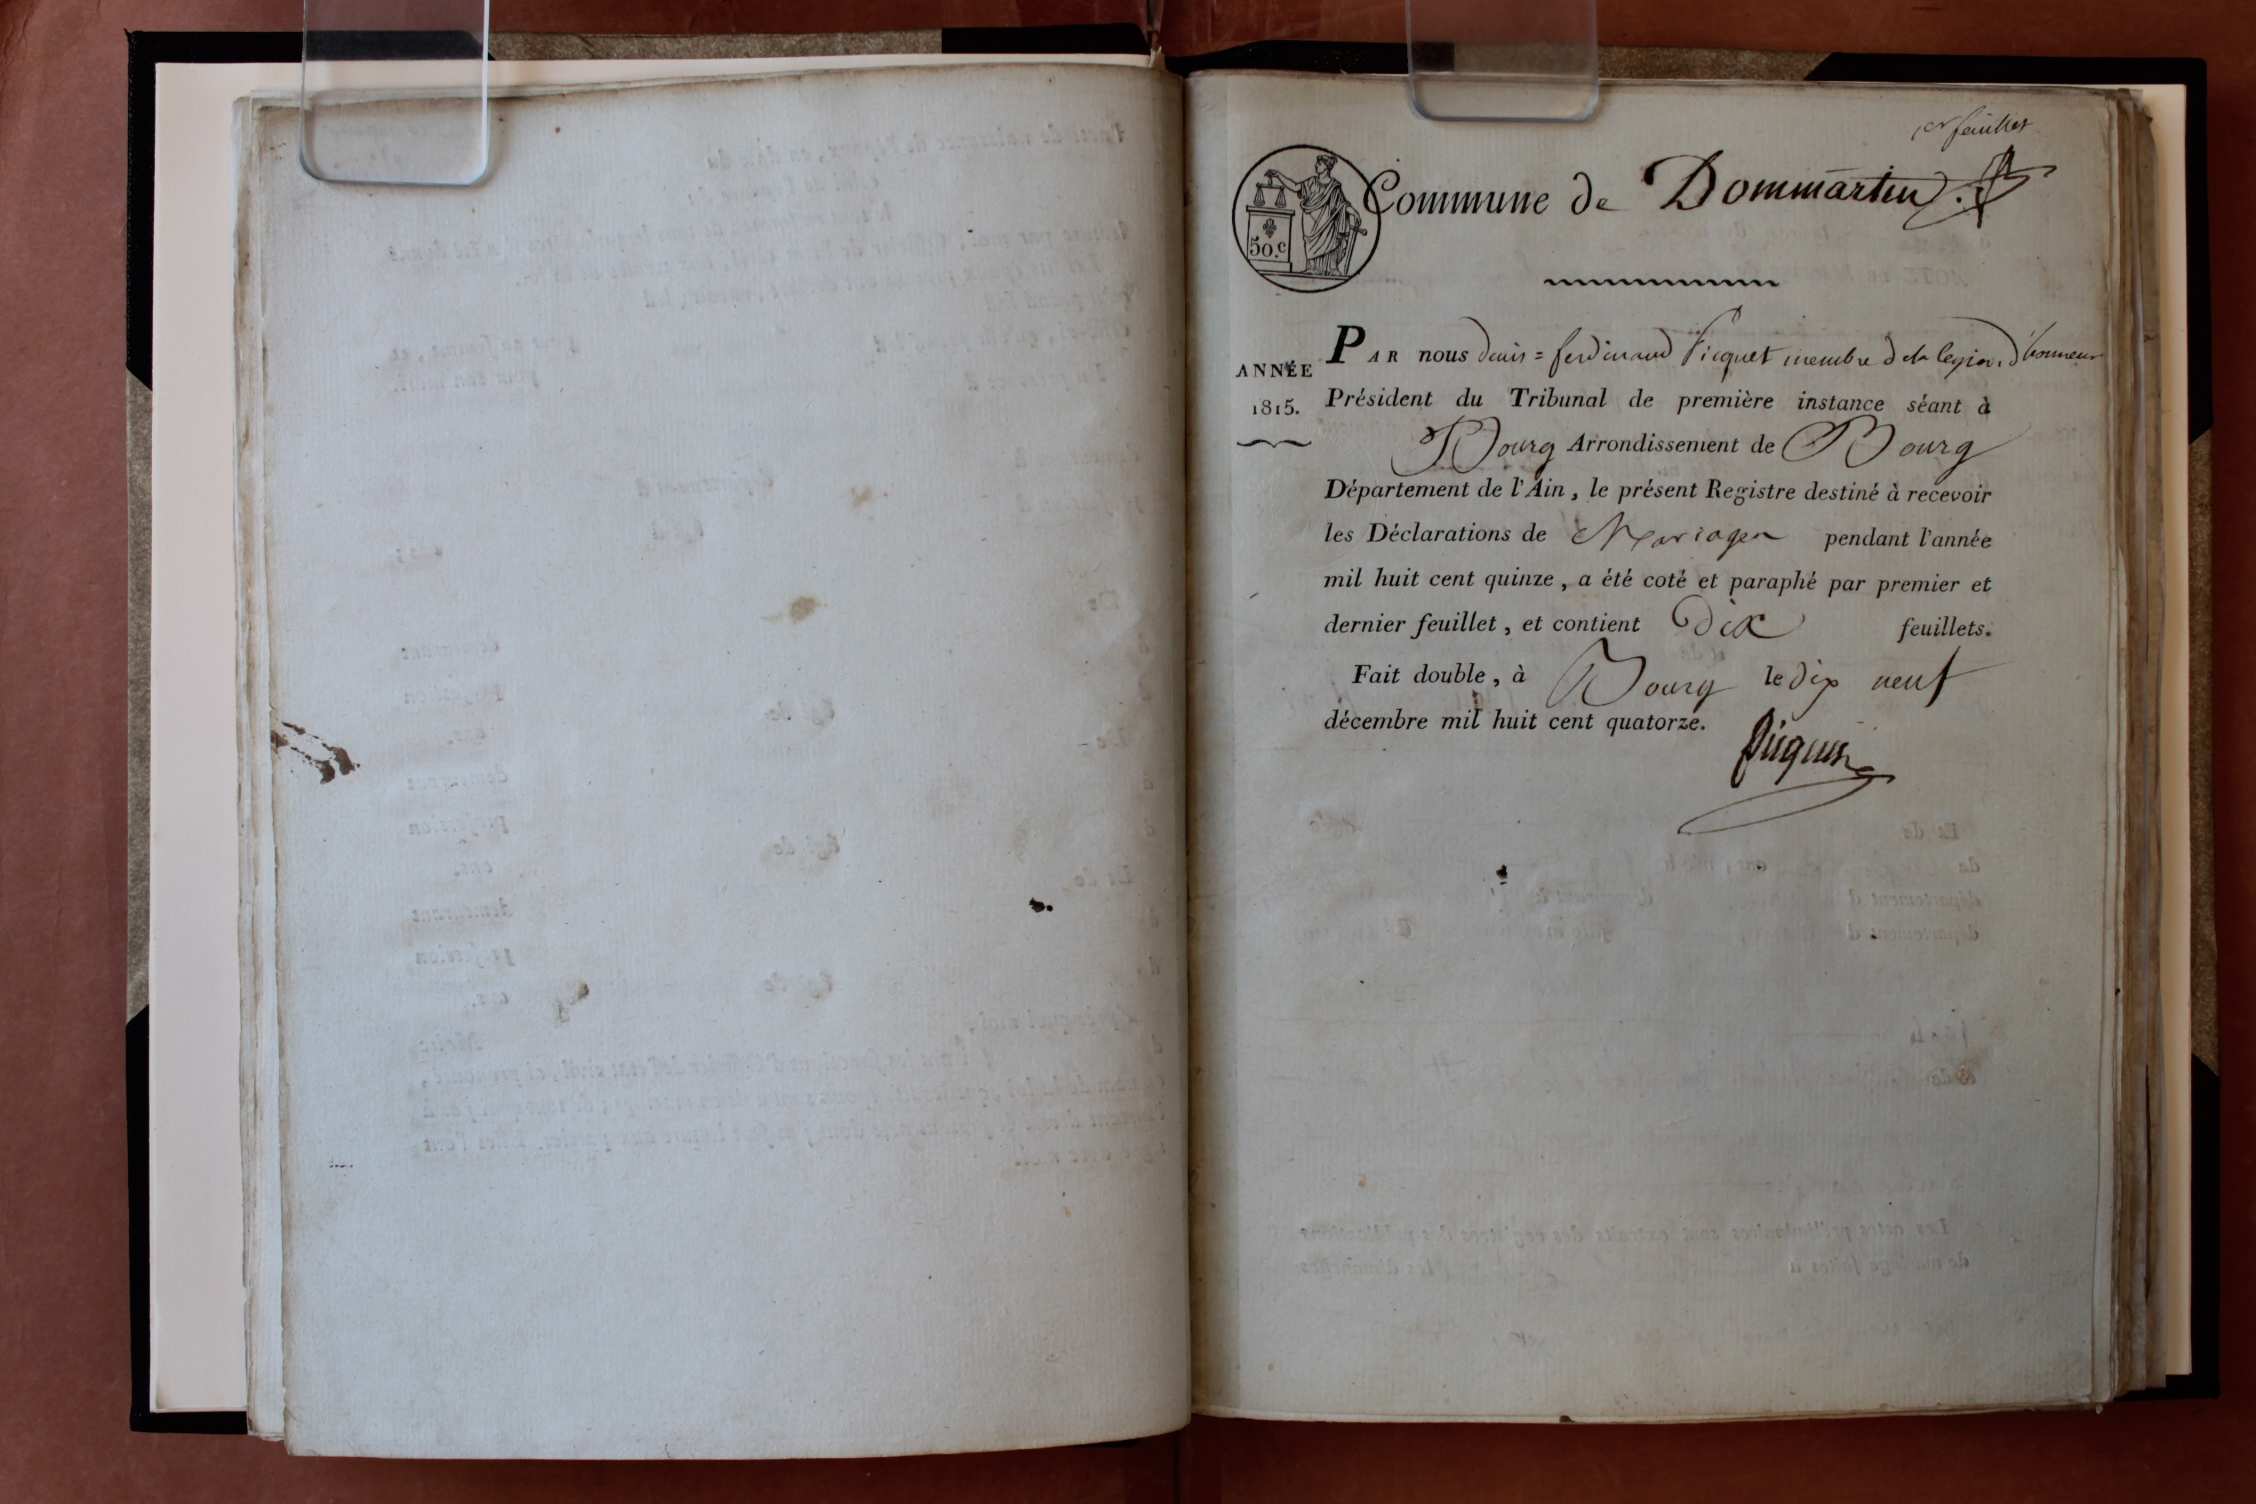 1er feuillet
Commune de Dommartin.
50.c
ANNÉE
1815.
PAR nous denis = ferdinand Picquet membre de la legion d'honneur
Président du Tribunal de première instance séant à
Bourg Arrondissement de Bourg
Département de l'Ain, le présent Registre destiné à recevoir
les Déclarations de Mariages pendant l'année
mil huit cent quinze, a été coté et paraphé par premier et
dernier feuillet, et contient dix feuillets.
Fait double, à Bourg le dix neuf
décembre mil huit cent quatorze.
Picquet